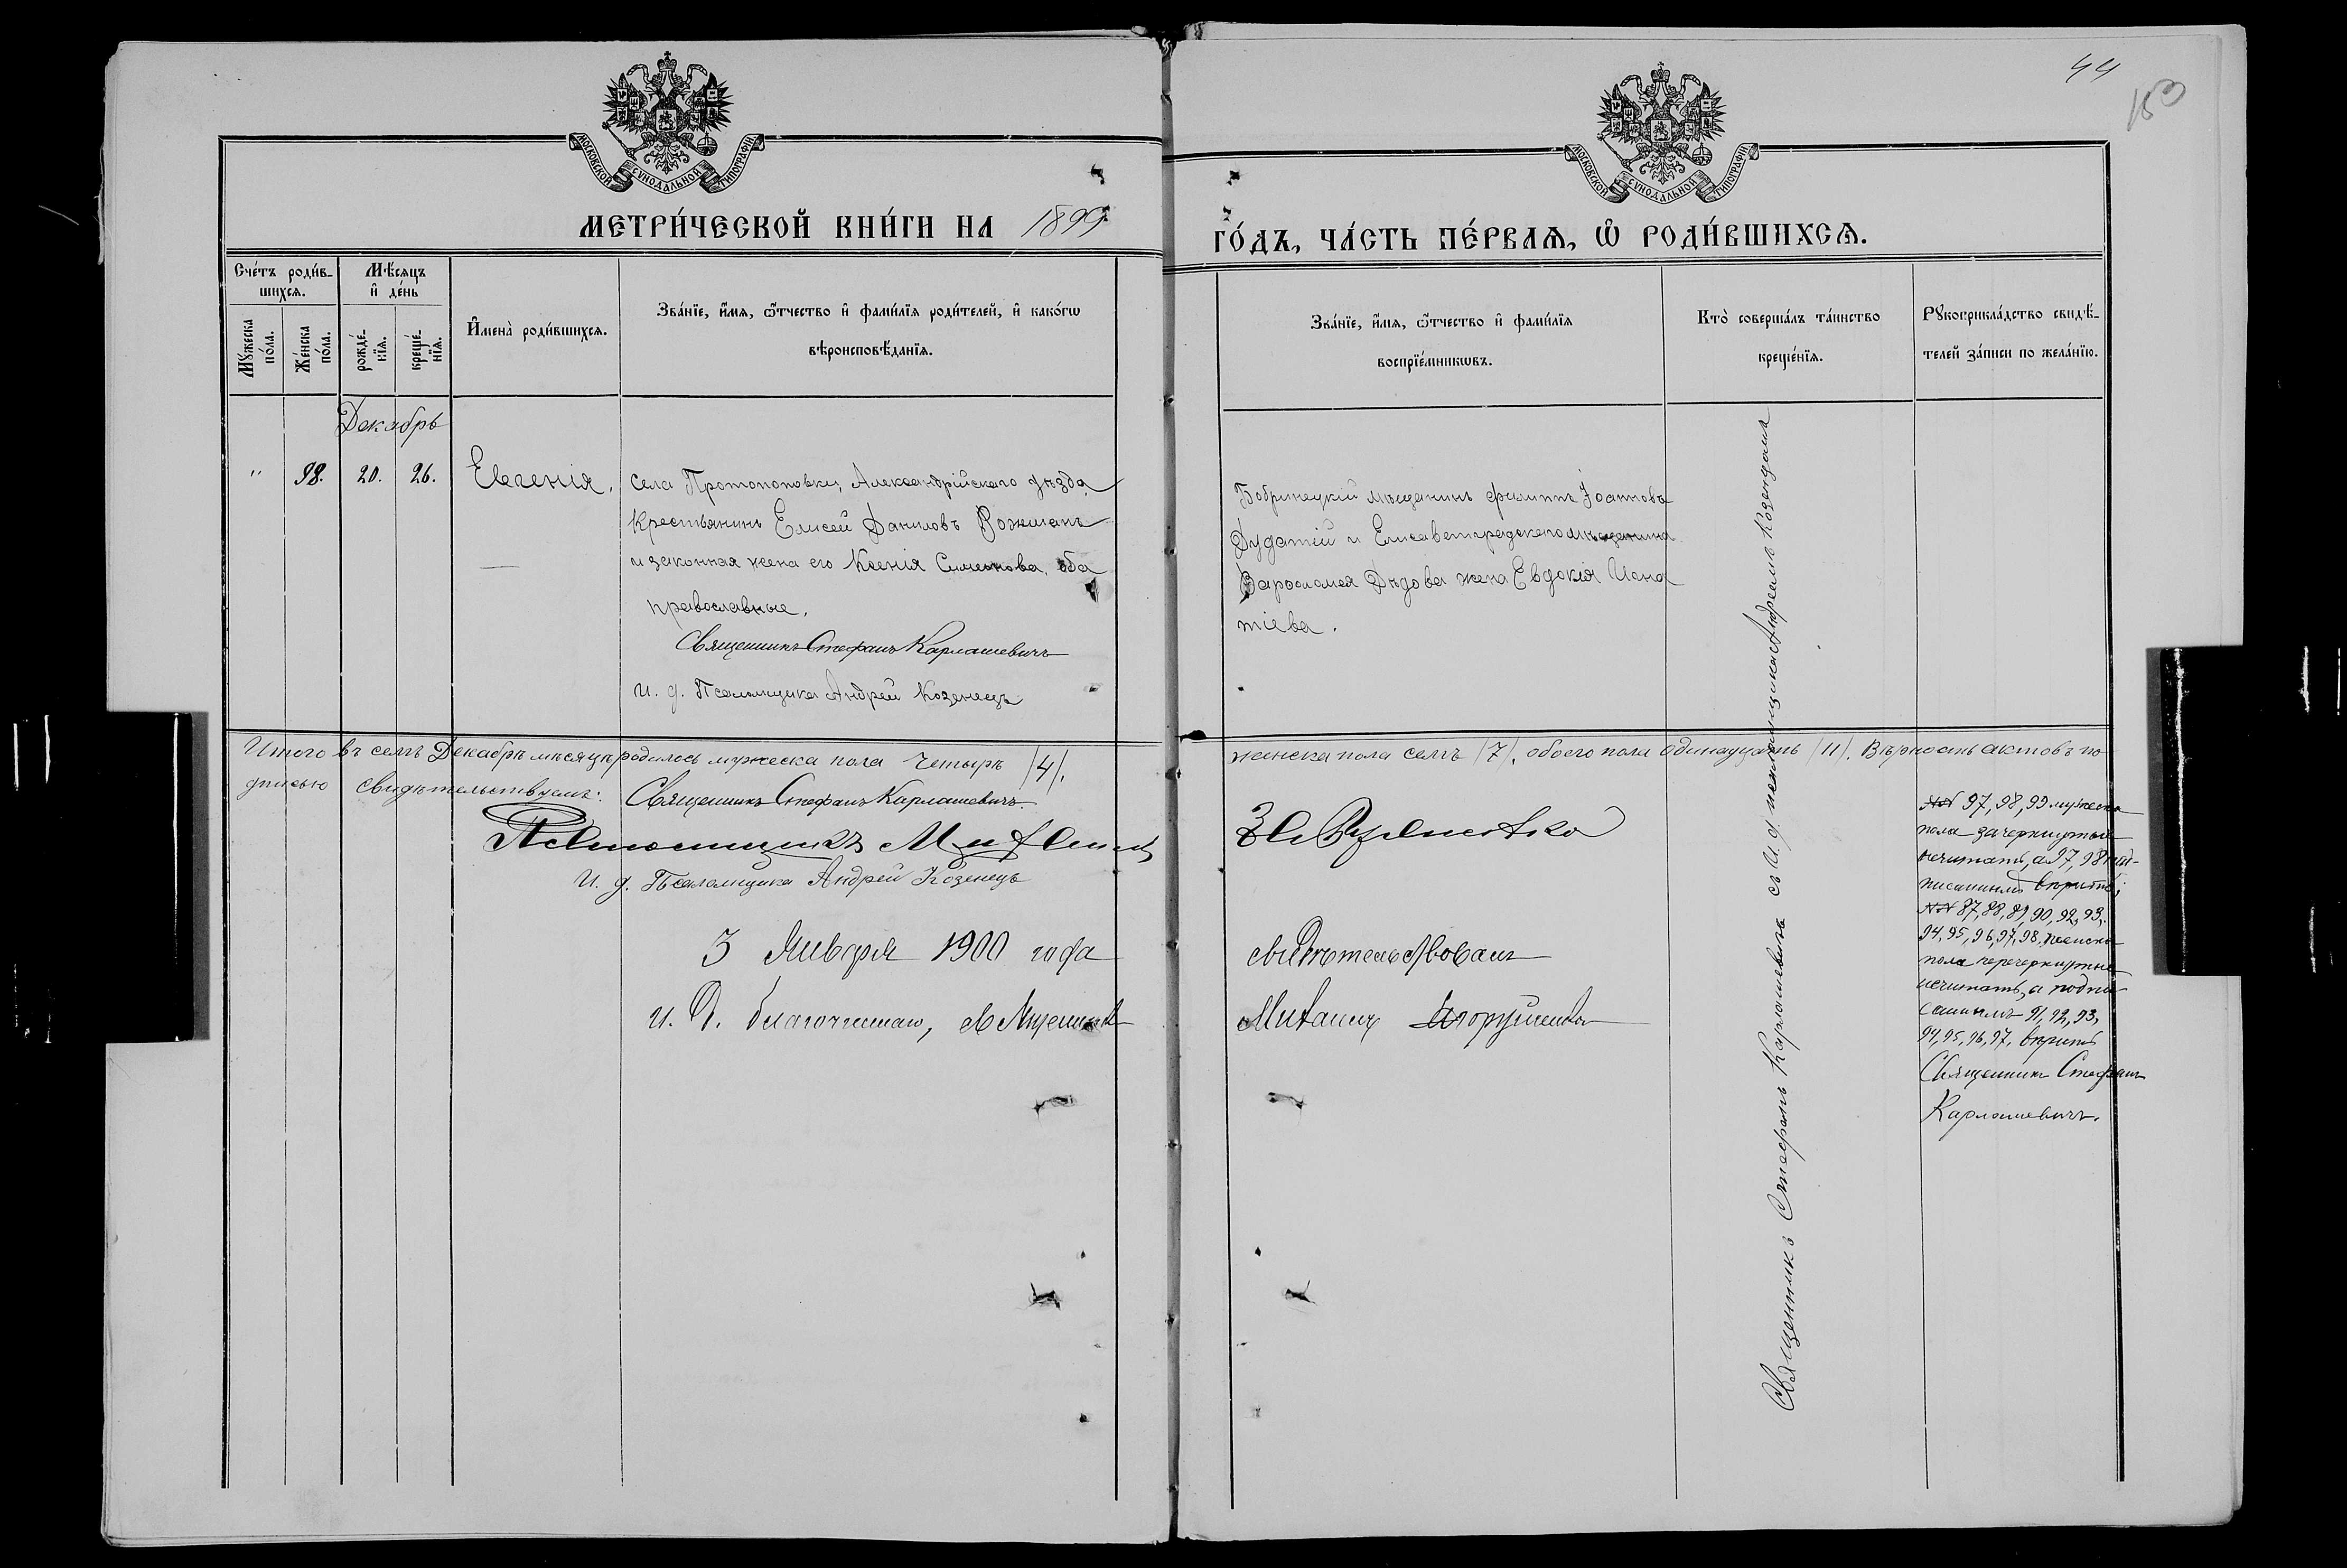 44
153
МОСКОВСКОЙ СѴНОДАЛЬНОЙ ТИПОГРАФІИ
МОСКОВСКОЙ СѴНОДАЛЬНОЙ ТИПОГРАФІИ
МЕТРИ́ЧЕСКОЙ КНИ́ГИ НА 1899
ГО́ДЪ, ЧА́СТЬ ПЕ́РВАѦ, Ѡ҆ РОДИ́ВШИХСѦ.
Сче́тъ роди́в-
шихсѧ.
Мѣ́сѧцъ
и҆ де́нь
Мꙋ́жеска
по́ла.
Же́нска
по́ла.
рожде́-
нїѧ.
креще́-
нїѧ.
И҆мена̀ роди́вшихсѧ.
Зва́нїе, и҆́мѧ, ѻ҆́тчество и҆ фами́лїѧ роди́телей, и҆ како́гѡ
вѣроисповѣ́данїѧ.
Зва́нїе, и҆́мѧ, ѻ҆́тчество и҆ фами́лїѧ
воспрїе́мникѡвъ.
Кто̀ соверша́лъ та́инство
креще́нїѧ.
Рꙋкоприкла́дство свидѣ́-
телей за́писи по жела́нїю.
Декабрь
" 98. 20. 26. Евгенія.
села Протопоповки, Александрійскаго уѣзда,
крестьянинъ Елисей Даниловъ Рожманъ
и законная жена его Ксенія Симеонова, оба
православные.
Священникъ Стефанъ Карлашевичъ
И. д. Псаломщика Андрей Козенецъ
Бобринецкій мѣщанинъ Филиппъ Іоанновъ
Дудатій и Елисаветградскаго мѣщанина
Варѳоломея Дѣдова жена Евдокія Игна
тіева.
Священникъ Стефанъ Карлашевичъ съ И. д. псаломщика Андреемъ Козенцомъ
Итого въ семъ Декабрѣ мѣсяцѣ родилось мужеска пола четыре /4/,
женска пола семь /7/, обоего пола одинадцать /11/. Вѣрность актовъ по
дписью свидѣтельствуемъ: Священникъ Стефанъ Карлашевичъ.
И. д. Псаломщика Андрей Козенецъ
3 Января 1900 года
И. Д. благочиннаго, священникъ
Михаилъ
№№ 97, 98, 99 мужеска
пола зачеркнутые
нечитать, а 97, 98 над-
писаннымъ вѣрить;
№№ 87, 88, 89, 90, 92, 93,
94, 95, 96, 97, 98, женска
пола перечеркнутые
нечитать, а подпи
саннымъ 91, 92, 93,
94, 95, 96, 97. вѣрить
Священникъ Стефанъ
Карлашевичъ.